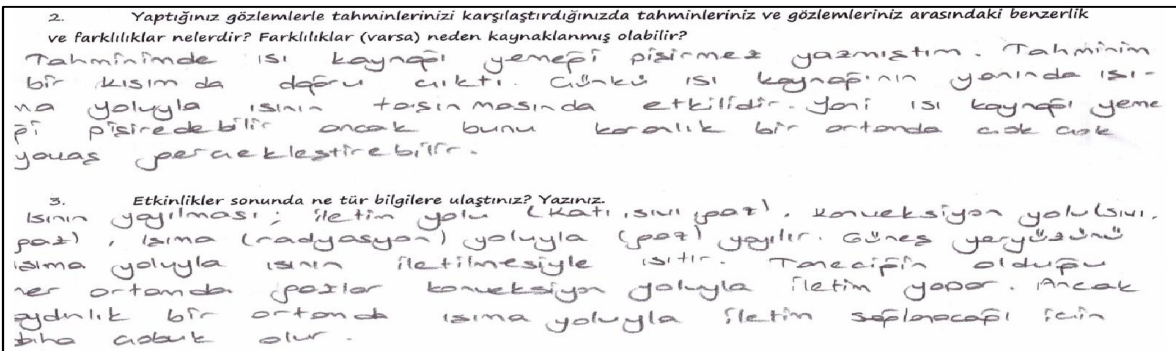 2. Yaptığınız gözlemlerle tahminlerinizi karşılaştırdığınızda tahminleriniz ve gözlemleriniz arasındaki benzerlik
ve farklılıklar nelerdir? Farklılıklar (varsa) neden kaynaklanmış olabilir?
Tahminimde ısı kaynağı yemeği pişirmez yazmıştım. Tahminim
bir kısım da doğru çıktı. Çünkü ısı kaynağının yanında ışı-
ma yoluyla ısının taşınmasında etkilidir. Yani ısı kaynağı yeme
ği pişiredebilir ancak bunu karanlık bir ortamda çok çok
yavaş gerçekleştirebilir.
3. Etkinlikler sonunda ne tür bilgilere ulaştınız? Yazınız.
Isının yayılması; iletim yolu (katı, sıvı, gaz), konveksiyon yolu (sıvı,
gaz), ışıma (radyasyon) yoluyla (gaz) yayılır. Güneş yeryüzünü
ışıma yoluyla ısının iletilmesiyle ısıtır. Taneciğin olduğu
her ortamda gazlar konveksiyon yoluyla iletim yapar. Ancak
aydınlık bir ortamda ışıma yoluyla iletim sağlanacağı için
daha çabuk olur.